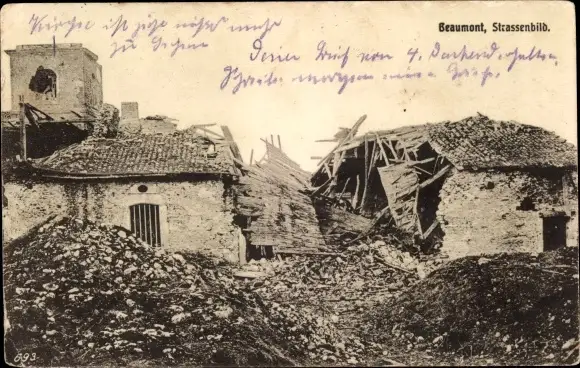 Kirche ist jetzt nicht mehr
zu sehen
Beaumont, Strassenbild.
Deinen Brief von 4. dankend erhalten
Schreibe morgen
893